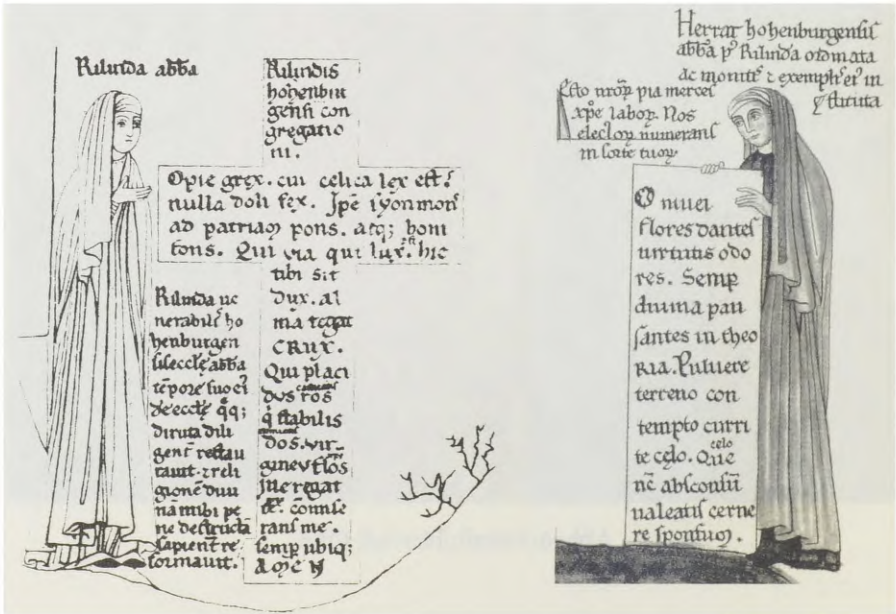 Rilinda abba
Rilindis
hohenbur
gensi con
gregatio
ni.
O pie grex. cui celica lex est.
nulla doli fex. Ipse syon mons
ad patriam pons. atq; boni
fons. Qui via qui lux. hic
tibi sit
dux. al
ma tegat
CRUX.
Qui placi
dus ros
q stabilis
dos. vir
gineus flos
ille regat
te. comise
rans me.
semp ubiq;
AMEN
Rilinda ue
nerabilis ho
henburgen
sis eccle abba
tempore suo ei
de eccle
diruta dili
gent restau
rauit. 7 reli
gione diui
na inibi pe
ne destructa
sapient re
formauit.
Herrat hohenburgensis
abba p Rilinda ordinata
ac monitis 7 exemplis ei in
stituta
Esto nror pia merces
xpe labor. Nos
elector numerans
in sorte tuor
O niuei
flores dantes
uirtutis odo
res. Semp
diuina pau
santes in theo
RIA. Puluere
terreno con
tempto curri
te celo. Que
nc absconsu
ualeatis cerne
re sponsum.